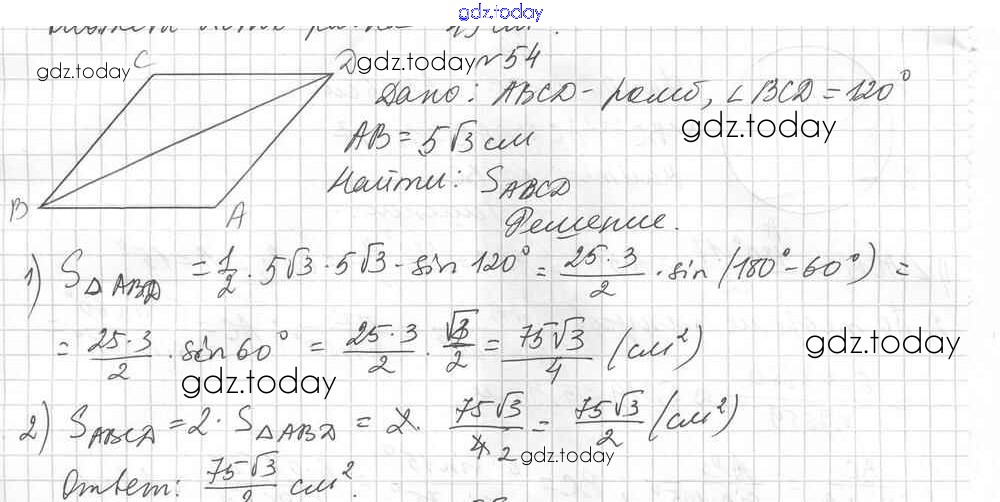 gdz.today
gdz.today
C
D
gdz.today
№54
Дано: ABCD - ромб, ∠BCD = 120°
gdz.today
AB = 5√3 см
Найти: S_ABCD
B
A
Решение.
1) S_ΔABD = 1/2 · 5√3 · 5√3 · sin 120° = 25·3/2 · sin (180° - 60°) =
= 25·3/2 · sin 60° = 25·3/2 · √3/2 = 75√3/4 (см²)
gdz.today
gdz.today
2) S_ABCD = 2 · S_ΔABD = 2 · 75√3/4 2 = 75√3/2 (см²)
gdz.today
Ответ: 75√3/2 см².